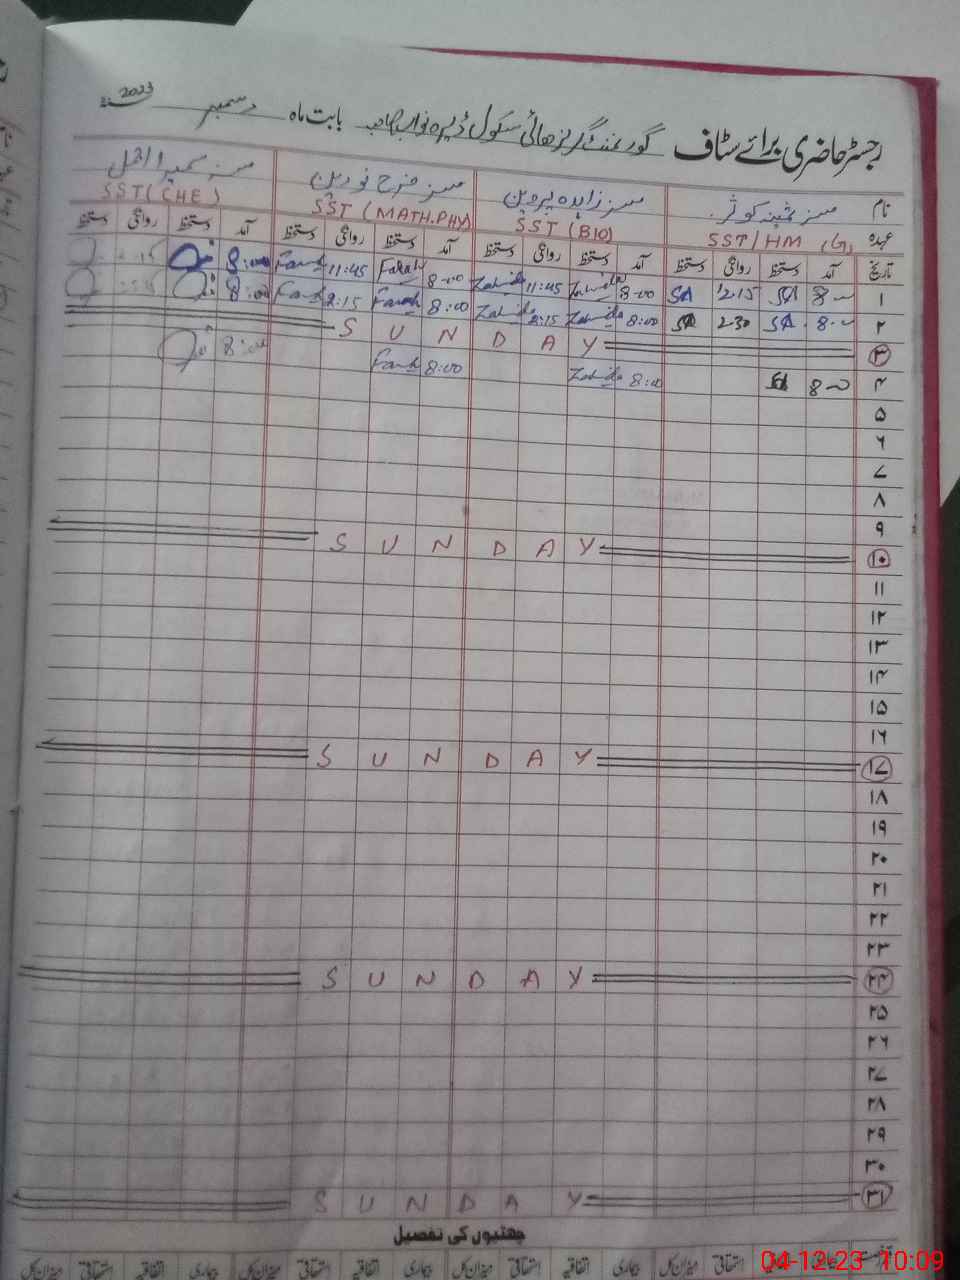 رجسٹر حاضری برائے سٹاف گورنمنٹ گرلز ھائی سکول ڈیرہ نواب صاحب بابت ماہ دسمبر 2023
نام مسز ثمینہ کوثر مسز زاہدہ پروین مسز فرح نورین مسز سمیرا
عہدہ SST/HM (G) SST (BIO) SST (MATH.PHY) SST (CHE)
تاریخ آمد دستخط روانگی دستخط آمد دستخط روانگی دستخط آمد دستخط روانگی دستخط آمد دستخط روانگی دستخط
۱ 8 SA 12:15 SA 8:00 Zahida 11:45 Zahida 8:00 Farah 11:45 Farah 8:00
۲ 8 SA 2:30 SA 8:00 Zahida 2:15 Zahida 8:00 Farah 2:15 Farah 8:00
۳ SUNDAY
۴ 8 SA 8:00 Zahida 8:00 Farah 8:00
۵
۶
۷
۸
۹
۱۰ SUNDAY
۱۱
۱۲
۱۳
۱۴
۱۵
۱۶
۱۷ SUNDAY
۱۸
۱۹
۲۰
۲۱
۲۲
۲۳
۲۴ SUNDAY
۲۵
۲۶
۲۷
۲۸
۲۹
۳۰
۳۱ SUNDAY
چھٹیوں کی تفصیل
استحقاقی میزان کل بیماری اتفاقیہ استحقاقی میزان کل بیماری اتفاقیہ استحقاقی میزان کل بیماری اتفاقیہ استحقاقی میزان کل
04-12-23 10:09